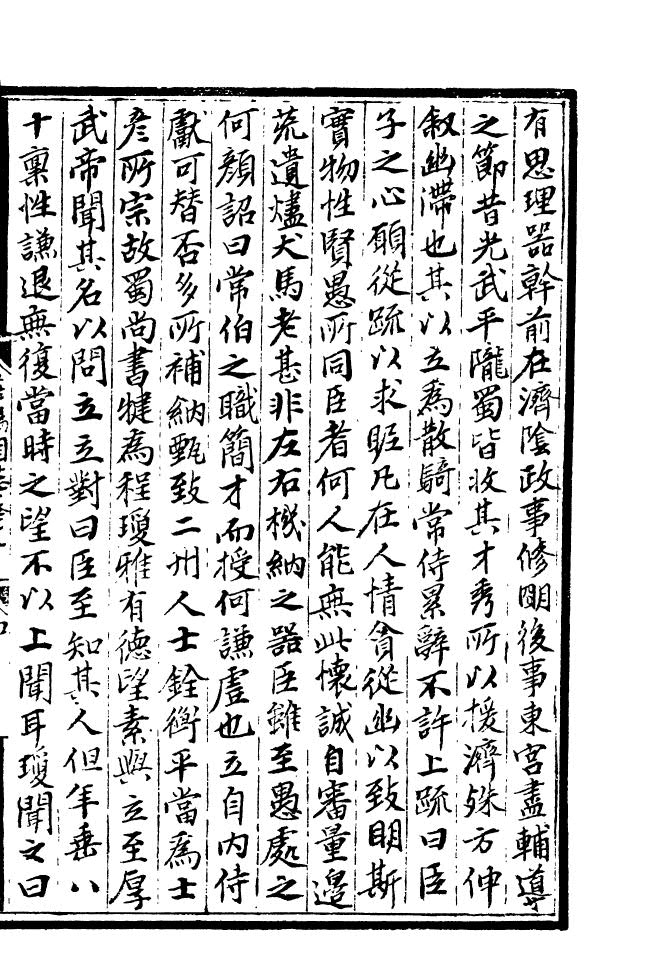 有思理器幹前在濟陰政事修明後事東宮盡輔導
之節昔光武平隴蜀皆收其才秀所以援濟殊方伸
叙幽滯也其以立為散騎常侍累辭不許上疏曰臣
子之心願從疏以求昵凡在人情貪從幽以致明斯
實物性賢愚所同臣者何人能無此懷誠自審量邉
荒遺燼犬馬老甚非左右機納之器臣雖至愚處之
何顔詔曰常伯之職簡才而授何謙虛也立自內侍
獻可替否多所補納甄致二州人士銓衡平當為士
彥所宗故蜀尚書犍為程瓊雅有德望素與立至厚
武帝聞其名以問立立對曰臣至知其人但年垂八
十稟性謙退無復當時之望不以上聞耳瓊聞之曰